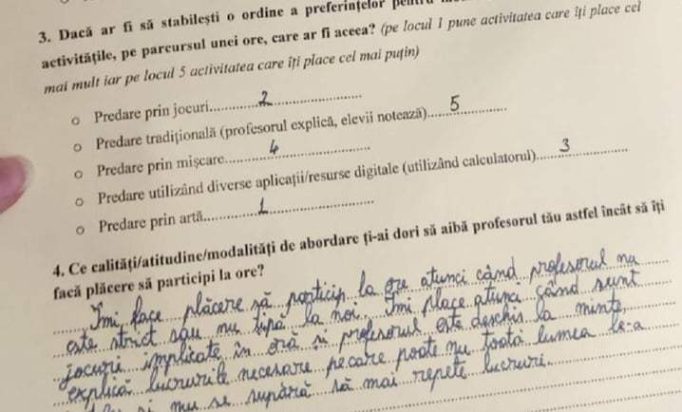 3. Dacă ar fi să stabilești o ordine a preferințelor pentru
activitățile, pe parcursul unei ore, care ar fi aceea? (pe locul 1 pune activitatea care îți place cel
mai mult iar pe locul 5 activitatea care îți place cel mai puțin)
o Predare prin jocuri............2............
o Predare tradițională (profesorul explică, elevii notează)......5............
o Predare prin mișcare............4............
o Predare utilizând diverse aplicații/resurse digitale (utilizând calculatorul)......3............
o Predare prin artă............1............
4. Ce calități/atitudine/modalități de abordare ți-ai dori să aibă profesorul tău astfel încât să îți
facă plăcere să participi la ore?
Îmi face plăcere să particip la ore atunci când profesorul nu
este strict sau nu țipă la noi. Îmi place atunci când sunt
jocuri implicate în oră și profesorul este deschis la minte,
explică lucrurile necesare pe care poate nu toată lumea le-a
și nu se supără să mai repete lucruri.